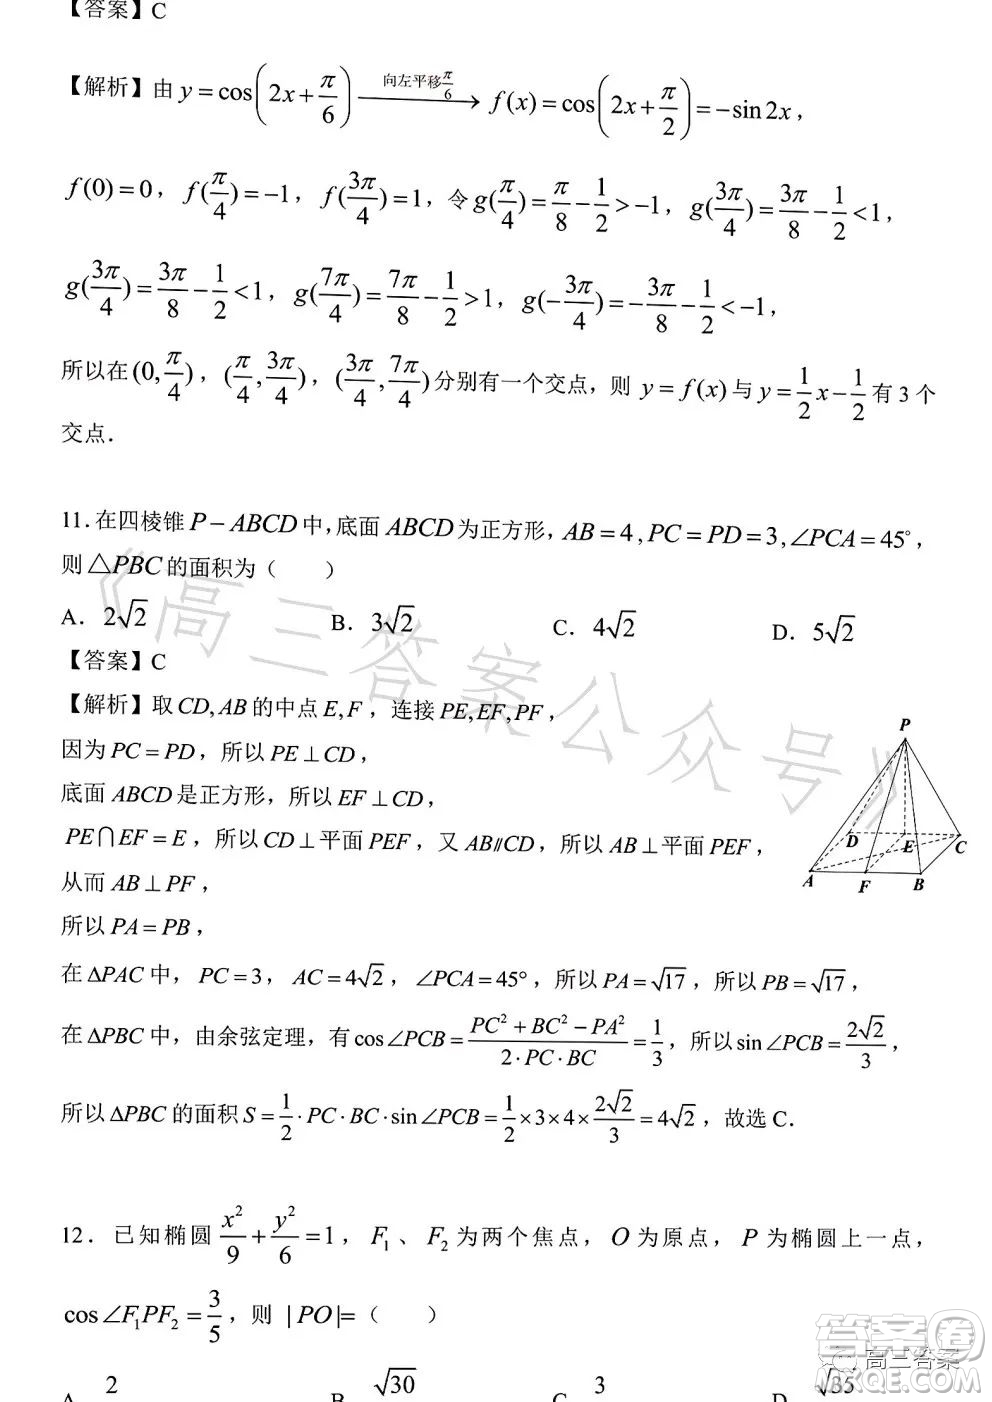 【答案】C
【解析】由 y=cos(2x+π/6) 向左平移π/6 → f(x)=cos(2x+π/2)=-sin2x，
f(0)=0，f(π/4)=-1，f(3π/4)=1，令g(π/4)=π/8-1/2>-1，g(3π/4)=3π/8-1/2<1，
g(3π/4)=3π/8-1/2<1，g(7π/4)=7π/8-1/2>1，g(-3π/4)=-3π/8-1/2<-1，
所以在(0,π/4)，(π/4,3π/4)，(3π/4,7π/4)分别有一个交点，则 y=f(x)与y=1/2x-1/2有3个
交点.
11.在四棱锥P-ABCD中,底面ABCD为正方形,AB=4,PC=PD=3,∠PCA=45°，
则△PBC的面积为（　　）
A. 2√2 B. 3√2 C. 4√2 D. 5√2
【答案】C
【解析】取CD,AB的中点E,F，连接PE,EF,PF，
因为PC=PD，所以PE⊥CD，
底面ABCD是正方形，所以EF⊥CD，
PE∩EF=E，所以CD⊥平面PEF，又AB//CD，所以AB⊥平面PEF，
从而AB⊥PF，
所以PA=PB，
P
D
E
C
A
F
B
在ΔPAC中，PC=3，AC=4√2，∠PCA=45°，所以PA=√17，所以PB=√17，
在ΔPBC中，由余弦定理，有cos∠PCB=(PC²+BC²-PA²)/(2·PC·BC)=1/3，所以sin∠PCB=2√2/3，
所以ΔPBC的面积S=1/2·PC·BC·sin∠PCB=1/2×3×4×2√2/3=4√2，故选C.
12．已知椭圆x²/9+y²/6=1，F₁、F₂为两个焦点，O为原点，P为椭圆上一点，
cos∠F₁PF₂=3/5，则 |PO|=（　　）
A. 2 B. √30 C. 3 D. √35
《高三答案公众号》
答案圈
高三答案